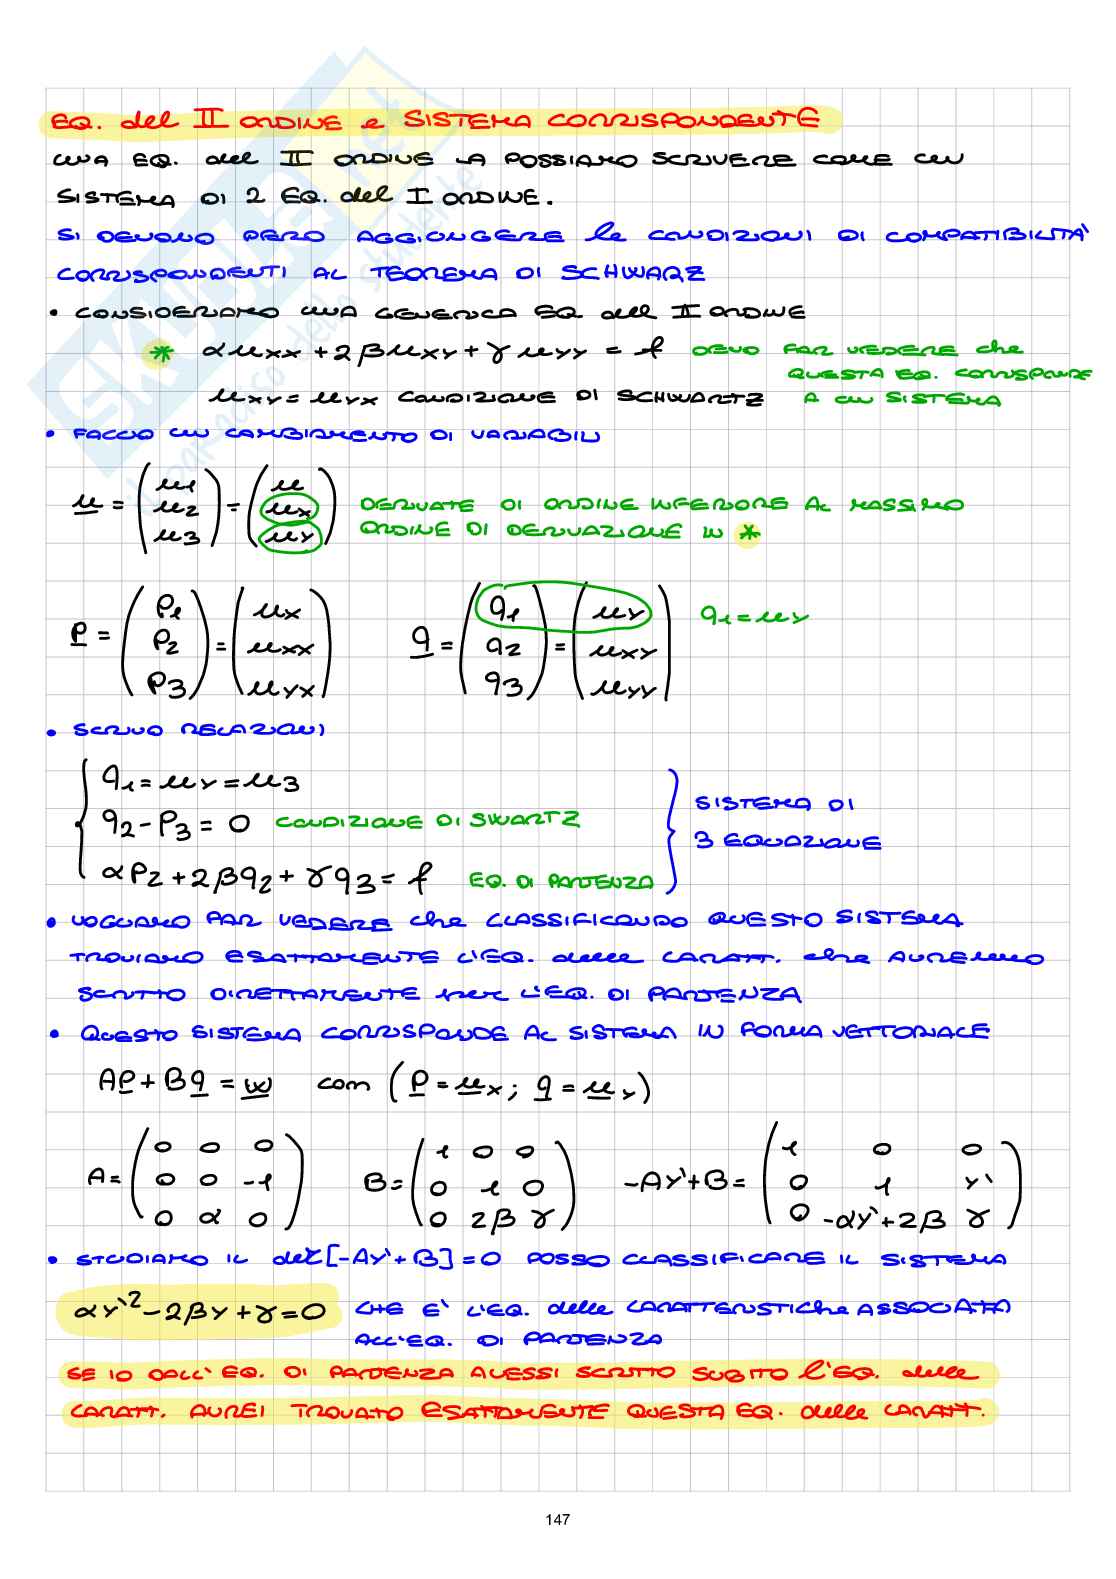 EQ. del II ORDINE e SISTEMA CORRISPONDENTE
UNA EQ. del II ORDINE LA POSSIAMO SCRIVERE COME UN
SISTEMA DI 2 EQ. del I ORDINE.
SI DEVONO PERO AGGIUNGERE le CONDIZIONI DI COMPATIBILITA'
CORRISPONDENTI AL TEOREMA DI SCHWARZ
• CONSIDERIAMO UNA GENERICA EQ. dell II ORDINE
* αu_xx + 2βu_xy + γu_yy = f DEVO FAR VEDERE che
QUESTA EQ. CORRISPONDE
u_xy = u_yx CONDIZIONE DI SCHWARTZ A UN SISTEMA
• FACCIO UN CAMBIAMENTO DI VARIABILI
u = (u1 u2 u3) = (u u_x u_y) DERIVATE DI ORDINE INFERIORE AL MASSIMO
ORDINE DI DERIVAZIONE IN *
P = (P1 P2 P3) = (u_x u_xx u_yx) q = (q1 q2 q3) = (u_y u_xy u_yy) q1 = u_y
• SCRIVO RELAZIONI
q1 = u_y = u3
q2 - P3 = 0 CONDIZIONE DI SWARTZ
αP2 + 2βq2 + γq3 = f EQ. DI PARTENZA
SISTEMA DI
3 EQUAZIONE
• VOGLIAMO FAR VEDERE che CLASSIFICANDO QUESTO SISTEMA
TROVIAMO ESATTAMENTE L'EQ. delle CARATT. che AVREMMO
SCRITTO DIRETTAMENTE per L'EQ. DI PARTENZA
• QUESTO SISTEMA CORRISPONDE AL SISTEMA IN FORMA VETTORIALE
AP + Bq = w con (P = u_x ; q = u_y)
A = (0 0 0 / 0 0 -1 / 0 α 0) B = (1 0 0 / 0 1 0 / 0 2β γ) -Ay'+B = (1 0 0 / 0 1 y' / 0 -αy'+2β γ)
• STUDIAMO IL det[-Ay'+B] = 0 POSSO CLASSIFICARE IL SISTEMA
αy'² - 2βy + γ = 0 CHE E' L'EQ. delle CARATTERISTIChe ASSOCIATA
ALL'EQ. DI PARTENZA
SE IO DALL'EQ. DI PARTENZA AVESSI SCRITTO SUBITO l'EQ. delle
CARATT. AVREI TROVATO ESATTAMENTE QUESTA EQ. delle CARATT.
147